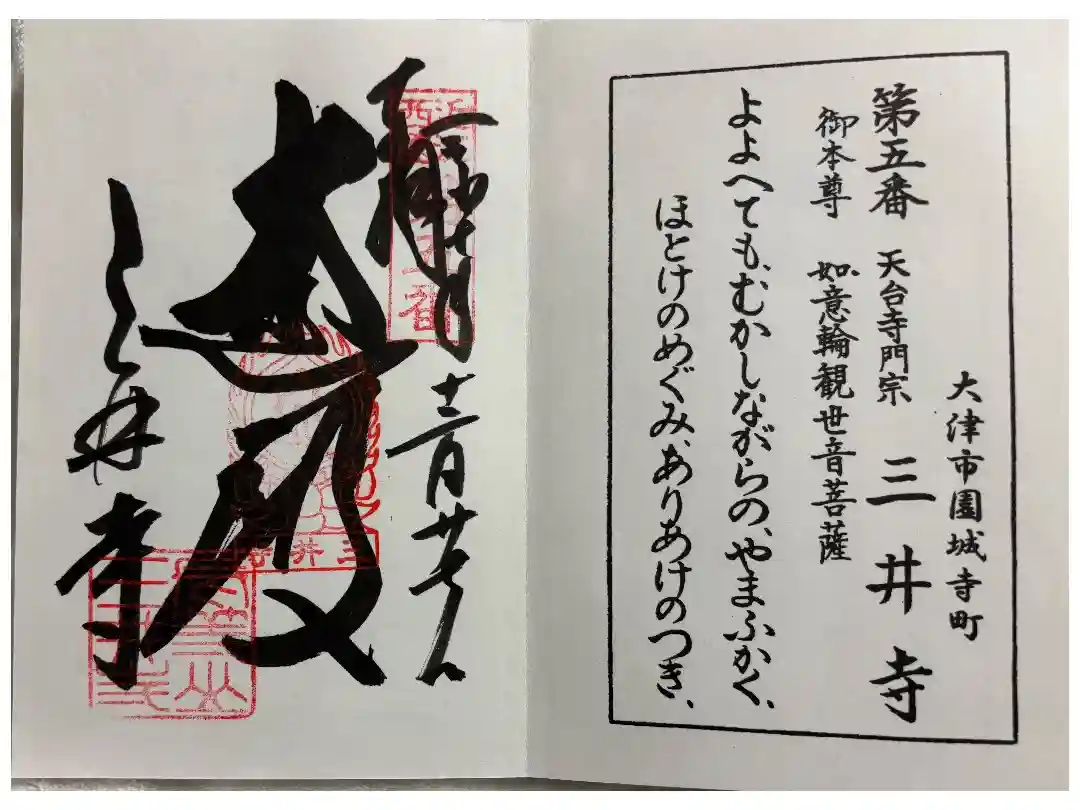 大津市園城寺町
第五番 天台寺門宗 三井寺
御本尊 如意輪観世音菩薩
よよへても、むかしながらの、やまふかく、
ほとけのめぐみ、ありあけのつき、
十二月廿七日
大悲殿
三井寺
三井寺